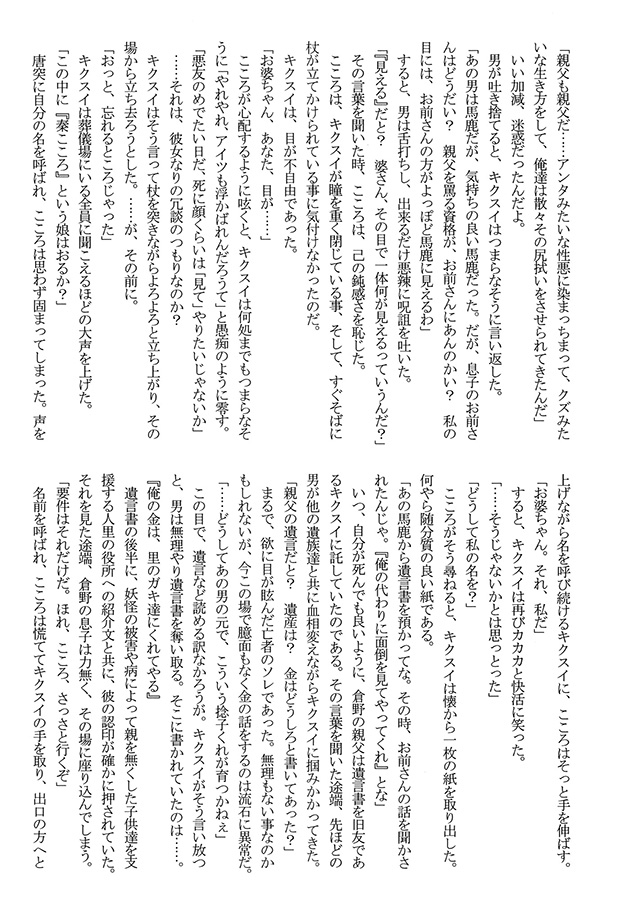 「親父も親父だ……アンタみたいな性悪に染まっちまって、クズみた
いな生き方をして、俺達は散々その尻拭いをさせられてきたんだ」
　いい加減、迷惑だったんだよ。
　男が吐き捨てると、キクスイはつまらなそうに言い返した。
「あの男は馬鹿だが、気持ちの良い馬鹿だった。だが、息子のお前さ
んはどうだい？　親父を罵る資格が、お前さんにあんのかい？　私の
目には、お前さんの方がよっぽど馬鹿に見えるわ」
　すると、男は舌打ちし、出来るだけ悪辣に呪詛を吐いた。
「『見える』だと？　婆さん、その目で一体何が見えるっていうんだ？」
　その言葉を聞いた時、こころは、己の鈍感さを恥じた。
　こころは、キクスイが瞳を重く閉じている事、そして、すぐそばに
杖が立てかけられている事に気付けなかったのだ。
　キクスイは、目が不自由であった。
「お婆ちゃん、あなた、目が……」
　こころが心配するように呟くと、キクスイは何処までもつまらなそ
うに「やれやれ、アイツも浮かばれんだろうて」と愚痴のように零す。
「悪友のめでたい日だ、死に顔くらいは「見て」やりたいじゃないか」
　……それは、彼女なりの冗談のつもりなのか？
　キクスイはそう言って杖を突きながらよろよろと立ち上がり、その
場から立ち去ろうとした。……が、その前に。
「おっと、忘れるところじゃった」
　キクスイは葬儀場にいる全員に聞こえるほどの大声を上げた。
「この中に『秦こころ』という娘はおるか？」
　唐突に自分の名を呼ばれ、こころは思わず固まってしまった。声を
上げながら名を呼び続けるキクスイに、こころはそっと手を伸ばす。
「お婆ちゃん。それ、私だ」
　すると、キクスイは再びカカカと快活に笑った。
「……そうじゃないかとは思っとった」
「どうして私の名を？」
　こころがそう尋ねると、キクスイは懐から一枚の紙を取り出した。
何やら随分質の良い紙である。
「あの馬鹿から遺言書を預かってな。その時、お前さんの話を聞かさ
れたんじゃ。『俺の代わりに面倒を見てやってくれ』とな」
　いつ、自分が死んでも良いように、倉野の親父は遺言書を旧友であ
るキクスイに託していたのである。その言葉を聞いた途端、先ほどの
男が他の遺族達と共に血相変えながらキクスイに掴みかかってきた。
「親父の遺言だと？　遺産は？　金はどうしろと書いてあった？」
　まるで、欲に目が眩んだ亡者のソレであった。無理もない事なのか
もしれないが、今この場で臆面もなく金の話をするのは流石に異常だ。
「……どうしてあの男の元で、こういう捻子くれが育つかねぇ」
　この目で、遺言など読める訳なかろうが。キクスイがそう言い放つ
と、男は無理やり遺言書を奪い取る。そこに書かれていたのは……。
『俺の金は、里のガキ達にくれてやる』
　遺言書の後半に、妖怪の被害や病によって親を無くした子供達を支
援する人里の役所への紹介文と共に、彼の認印が確かに押されていた。
それを見た途端、倉野の息子は力無く、その場に座り込んでしまう。
「要件はそれだけだ。ほれ、こころ、さっさと行くぞ」
　名前を呼ばれ、こころは慌ててキクスイの手を取り、出口の方へと